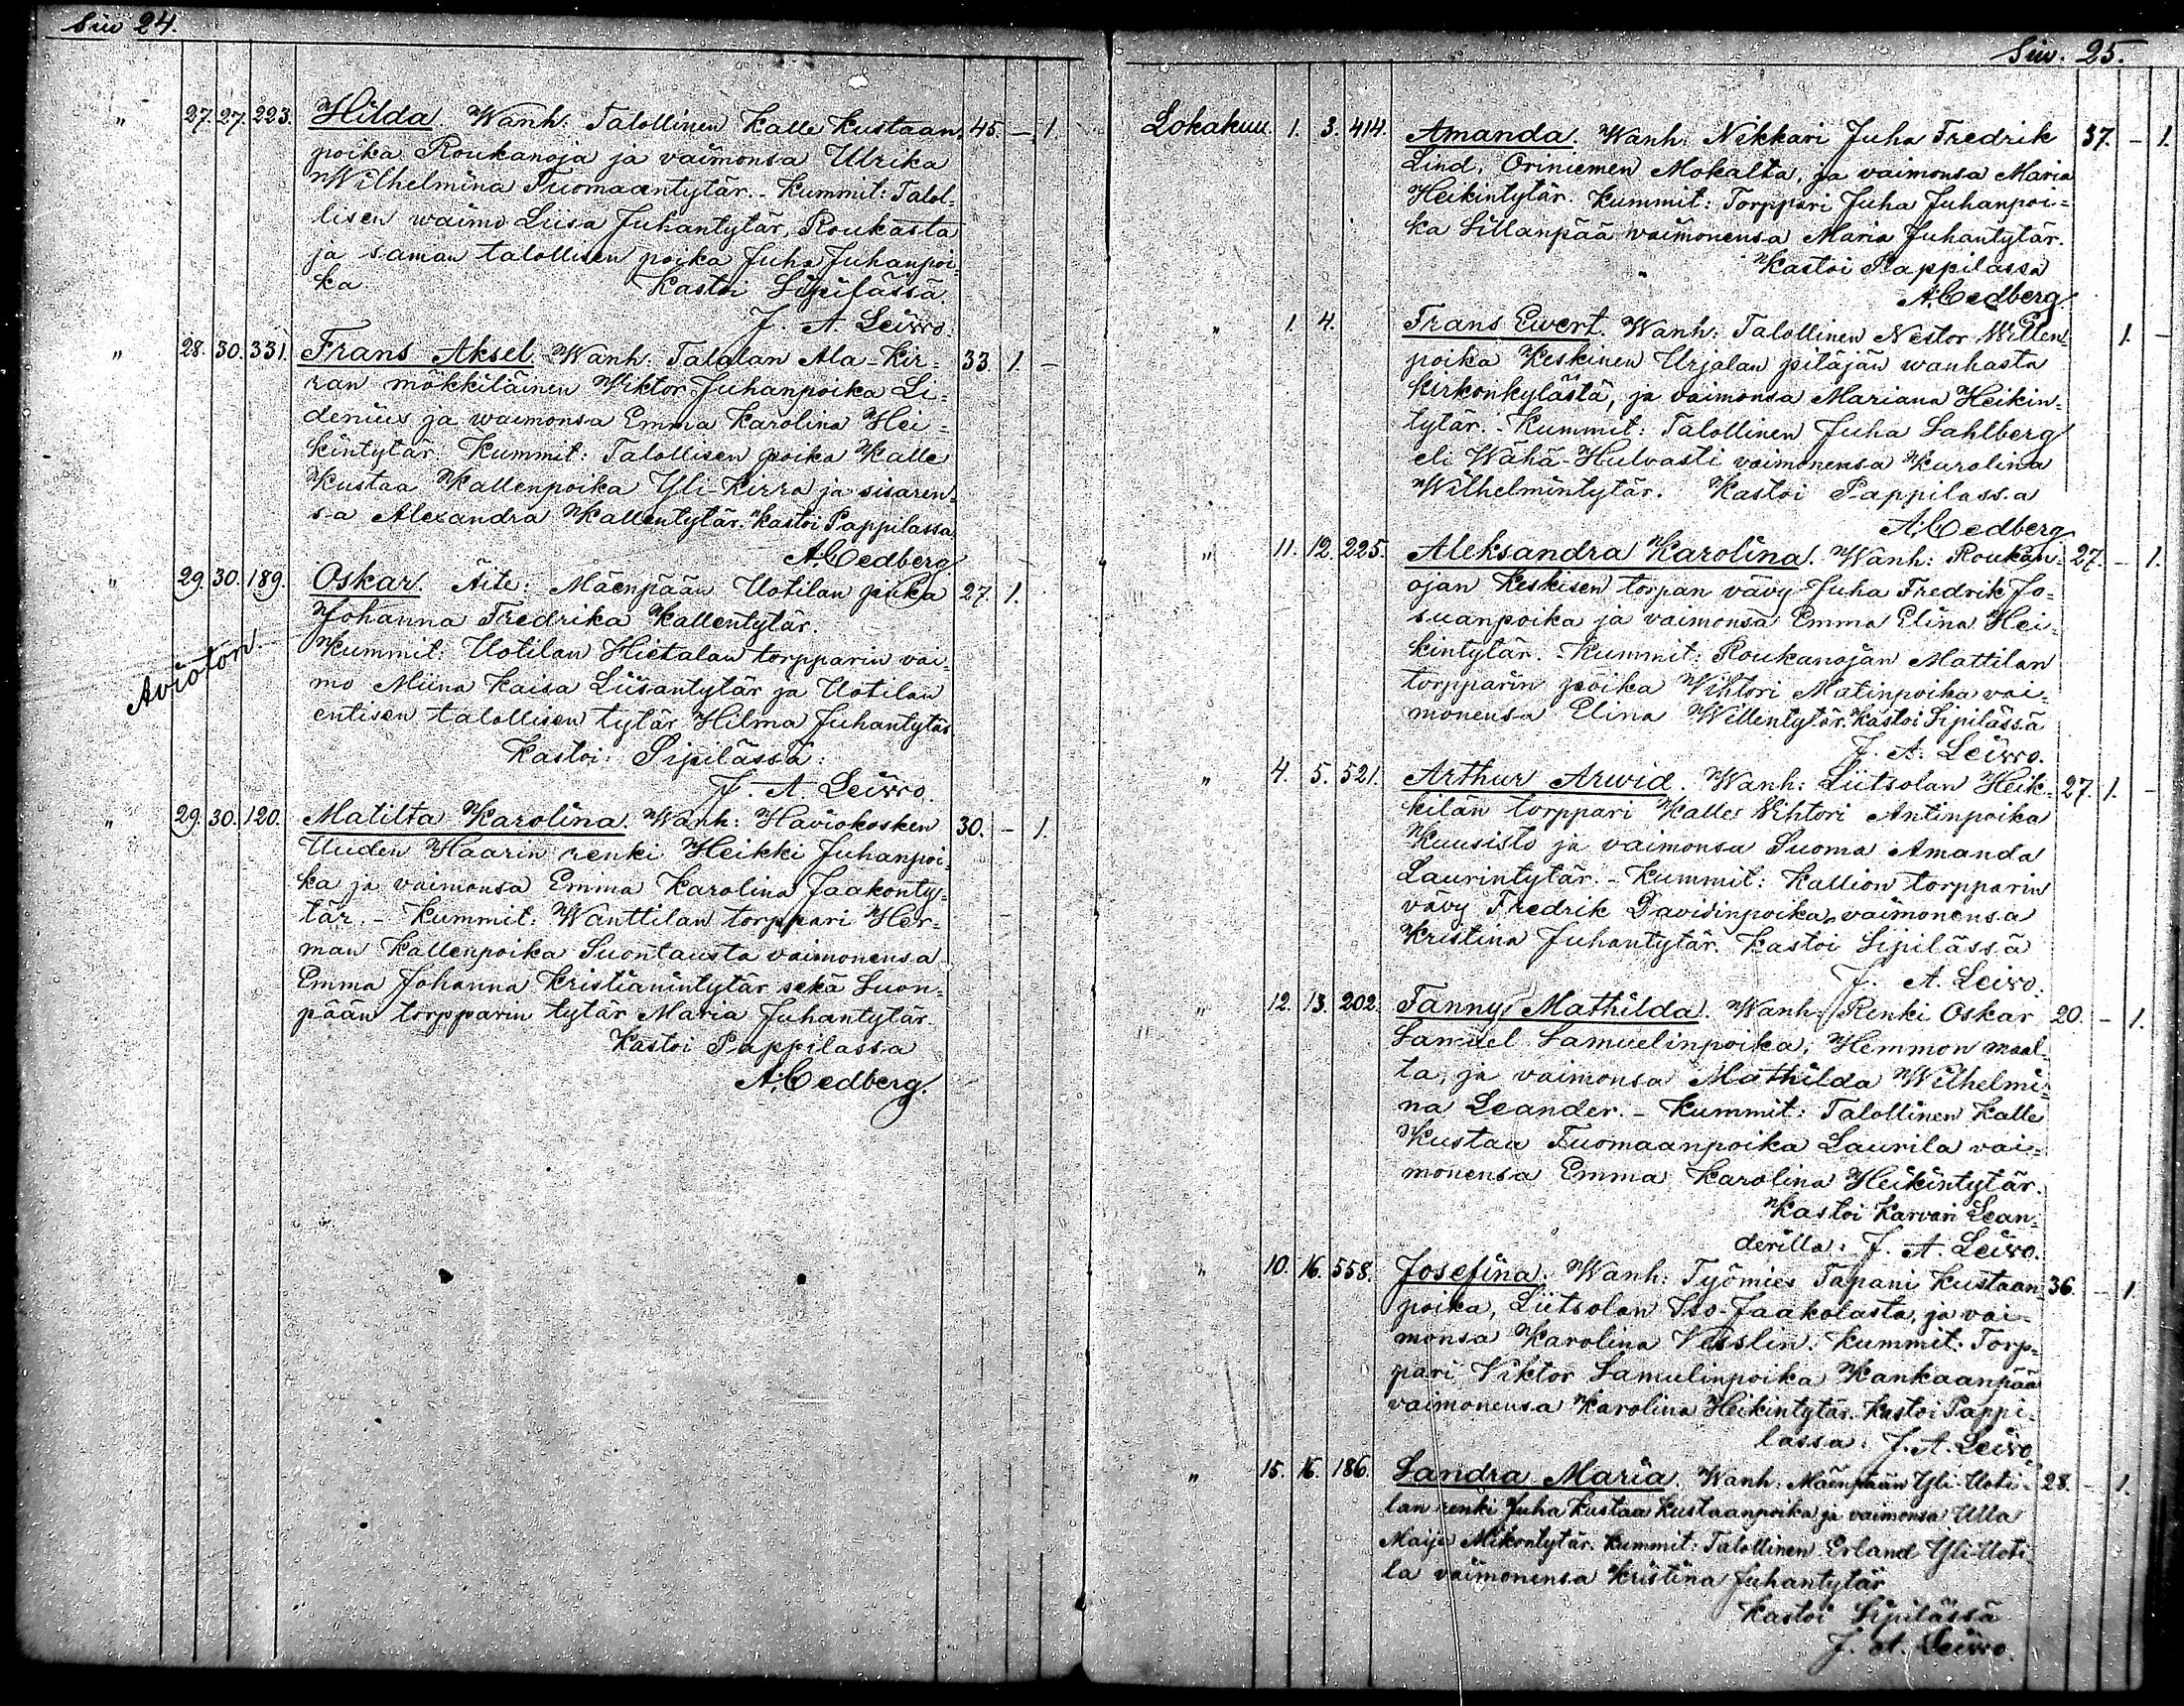 Siv 24.
" 27. 27. 223. Hilda. Wanh: Talollinen Kalle Kustaan- 45. — 1.
poika Roukanoja ja vaimonsa Ulrika
Wilhelmina Tuomaantytär. - Kummit: Talol=
lisen waimo Liisa Juhantytär, Roukasta
ja saman talollisen poika Juha Juhanpoi=
ka. Kastoi Sipilässä
J. A Leivo.
" 28. 30. 331. Frans Aksel. Wanh. Talalan Ala-Kir= 33. 1. —
ran mökkiläinen Wiktor Juhanpoika Li=
denius ja waimonsa Emma Karolina Hei=
kintytär. Kummit: Talollisen poika Kalle
Kustaa Kallenpoika Yli-Kirra ja sisaren=
sa Alexandra Kallentytär. Kastoi Pappilassa
A. Cedberg.
" 29. 30. 189. Oskar. Äite: Mäenpään Uotilan piika 27. 1.
Johanna Fredrika Kallentytär.
Avioton. Kummit: Uotilan Hietalan torpparin vai=
mo Miina Kaisa Liisantytär ja Uotilan
entisen talollisen tytär Hilma Juhantytär
Kastoi: Sipilässä:
J. A. Leivo.
" 29. 30. 120. Matilta Karolina. Wanh: Haviokosken 30. — 1.
Uuden Haarin renki Heikki Juhanpoi=
ka ja vaimonsa Emma Karolina Jaakonty=
tär. - Kummit: Wanttilan torppari Her=
man Kallenpoika Suontausta vaimonensa
Emma Johanna Kristianintytär sekä Suon=
pään torpparin tytär Maria Juhantytär.
Kastoi Pappilassa
A. Cedberg.
Siv. 25.
Lokakuu. 1. 3. 414. Amanda. Wanh: Nikkari Juha Fredrik 37. — 1.
Lind, Oriniemen Mokalta, ja vaimonsa Maria
Heikintytär. Kummit: Torppari Juha Juhanpoi=
ka Sillanpää waimonensa Maria Juhantytär.
Kastoi Pappilassa
A. Cedberg.
" 1. 4. Frans Ewert. Wanh: Talollinen Nestor Willen= 1. —
poika Keskinen Urjalan pitäjän wanhasta
kirkonkylästä, ja vaimonsa Mariana Heikin=
tytär. - Kummit: Talollinen Juha Sahlberg
eli Wähä-Hulvasti vaimonensa Karolina
Wilhelmintytär. Kastoi Pappilassa
A. Cedberg
" 11. 12. 225. Aleksandra Karolina. Wanh: Roukan= 27. — 1.
ojan Keskisen torpan vävy Juha Fredrik Jo=
suanpoika ja vaimonsa Emma Elina Hei=
kintytär. - Kummit: Roukanojan Mattilan
torpparin poika Wihtori Matinpoika vai=
monensa Elina Willentytär. Kastoi Sipilässä
J. A. Leivo.
" 4. 5. 521. Arthur Arwid. Wanh: Liitsolan Heik= 27. 1. —
kilän torppari Kalle Wihtori Antinpoika
Kuusisto ja vaimonsa Suoma Amanda
Laurintytär. - Kummit: Kallion torpparin
vävy Fredrik Davidinpoika vaimonensa
Kristina Juhantytär. Kastoi Sipilässä
J. A. Leivo.
" 12. 13. 202. Fanny Mathilda. Wanh: Renki Oskar 20. — 1.
Samuel Samuelinpoika, Hemmon maal=
ta, ja vaimonsa Mathilda Wilhelmi=
na Leander. - Kummit: Talollinen Kalle
Kustaa Tuomaanpoika Laurila vai=
monensa Emma Karolina Heikintytär.
Kastoi Karvari Lean=
derilla: J. A. Leivo.
" 10. 16. 558. Josefina. Wanh: Työmies Tapani Kustaan= 36. — 1.
poika, Liitsolan Iso-Jaakolasta, ja vai=
monsa Karolina Wesslin. Kummit: Torp=
pari Viktor Samulinpoika Kankaanpää
vaimonensa Karolina Heikintytär. Kastoi Pappi=
lassa: J. A. Leivo
" 15. 16. 186. Sandra Maria. Wanh. Mäenpään Yli Uoti= 28. — 1.
lan renki Juha Kustaa Kustaanpoika ja vaimonsa Ulla
Maija Mikontytär. Kummit: Talollinen Erland Yli-Uoti=
la vaimonensa Kristina Juhantytär
Kastoi Sipilässä
J. A. Leivo.